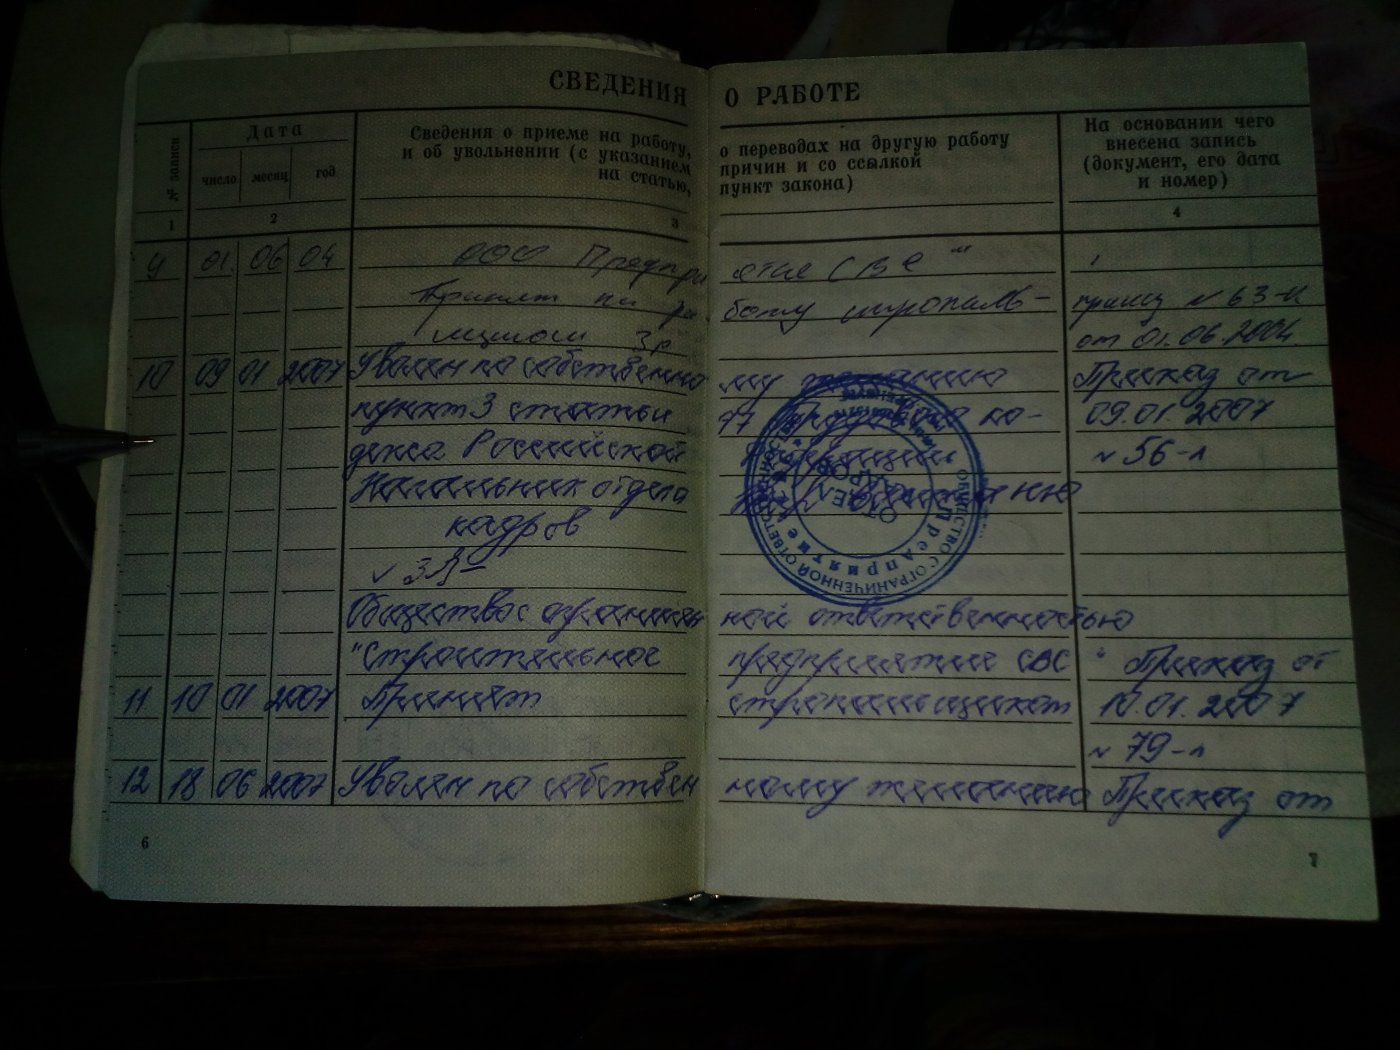 СВЕДЕНИЯ О РАБОТЕ
№ записи
Дата
число месяц год
Сведения о приеме на работу, о переводах на другую работу
и об увольнении (с указанием причин и со ссылкой
на статью, пункт закона)
На основании чего
внесена запись
(документ, его дата
и номер)
1 2 3 4
9 01. 06 04 ООО Предприятие СВС"
Принят на работу стропаль- приказ № 63-к
щиком 3р от 01.06.2004
10 09 01 2007 Уволен по собственному желанию Приказ от
пункт 3 статьи 77 Трудового ко- 09.01.2007
декса Российской Федерации № 56-л
Начальник отдела
кадров
ОБЩЕСТВО С ОГРАНИЧЕННОЙ ОТВЕТСТВЕННОСТЬЮ
Предприятие
ОТДЕЛ КАДРОВ
Общество с ограниченной ответственностью
"Строительное предприятие СВС" Приказ от
11 10 01 2007 Принят стропальщиком 10.01.2007
№ 79-л
12 18 06 2007 Уволен по собственному желанию Приказ от
6 7